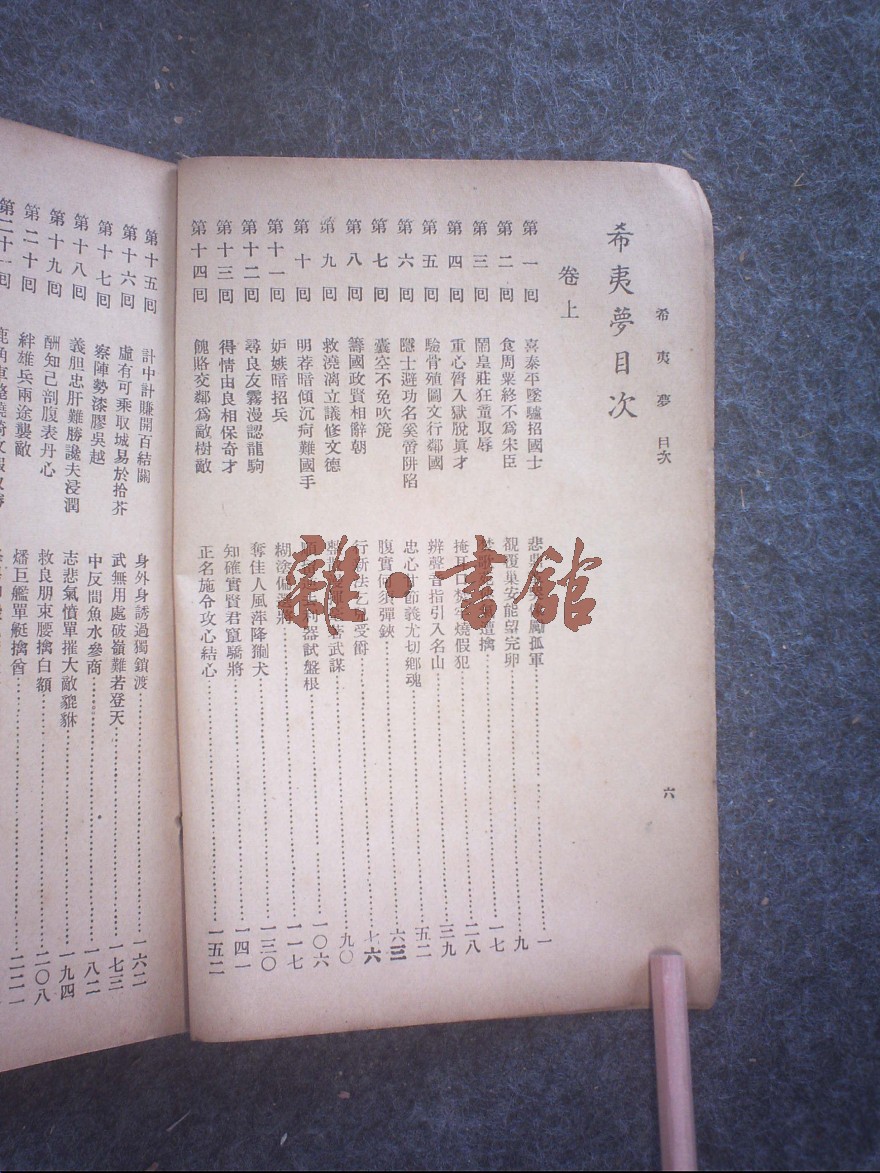 希夷夢 目次 六
希夷夢目次
卷上
第一回 喜泰平墜驢招國士 孤軍 一
第二回 食周粟終不爲宋臣 覆巢安能望完卵 九
第三回 鬧皇莊狂童取辱 遭擒 一七
第四回 重心膂入獄脫眞才 燒假犯 二八
第五回 驗骨殖圖文行鄰國 辨聲音指引入名山 三九
第六回 隱士避功名奚啻阱陷 忠心 節義尤切鄉魂 五二
第七回 囊空不免吹箎 腹實何須彈鋏 六三
第八回 籌國政賢相辭朝 行新法乞兒受爵 七六
第九回 救澆漓立議修文德 武謀 九〇
第十回 明荐暗傾沉疴難國手 利器試盤根 一〇六
第十一回 妒嫉暗招兵 糊塗偏 將 一一七
第十二回 尋良友霧漫認龍駒 奪佳人風萍降猘犬 一三〇
第十三回 得情由良相保奇才 知確實賢君竄驕將 一四一
第十四回 餽賂交鄰爲敵樹敵 正名施令攻心結心 一五二
第十五回 計中計賺開百結關 身外身誘過獨鎖渡 一六二
第十六回 虛有可乘取城易於拾芥 武無用處破嶺難若登天 一七三
第十七回 察陣勢漆膠吳越 中反間魚水參商 一八二
第十八回 義胆忠肝難勝讒夫浸潤 志悲氣憤單摧大敵貔貅 一九四
第十九回 酬知己剖腹表丹心 救良朋束腰擒白額 二〇八
第二十回 絆雄兵兩途襲敵 燔巨艦單艇擒酋 二二一
第二十一回
雜·書館